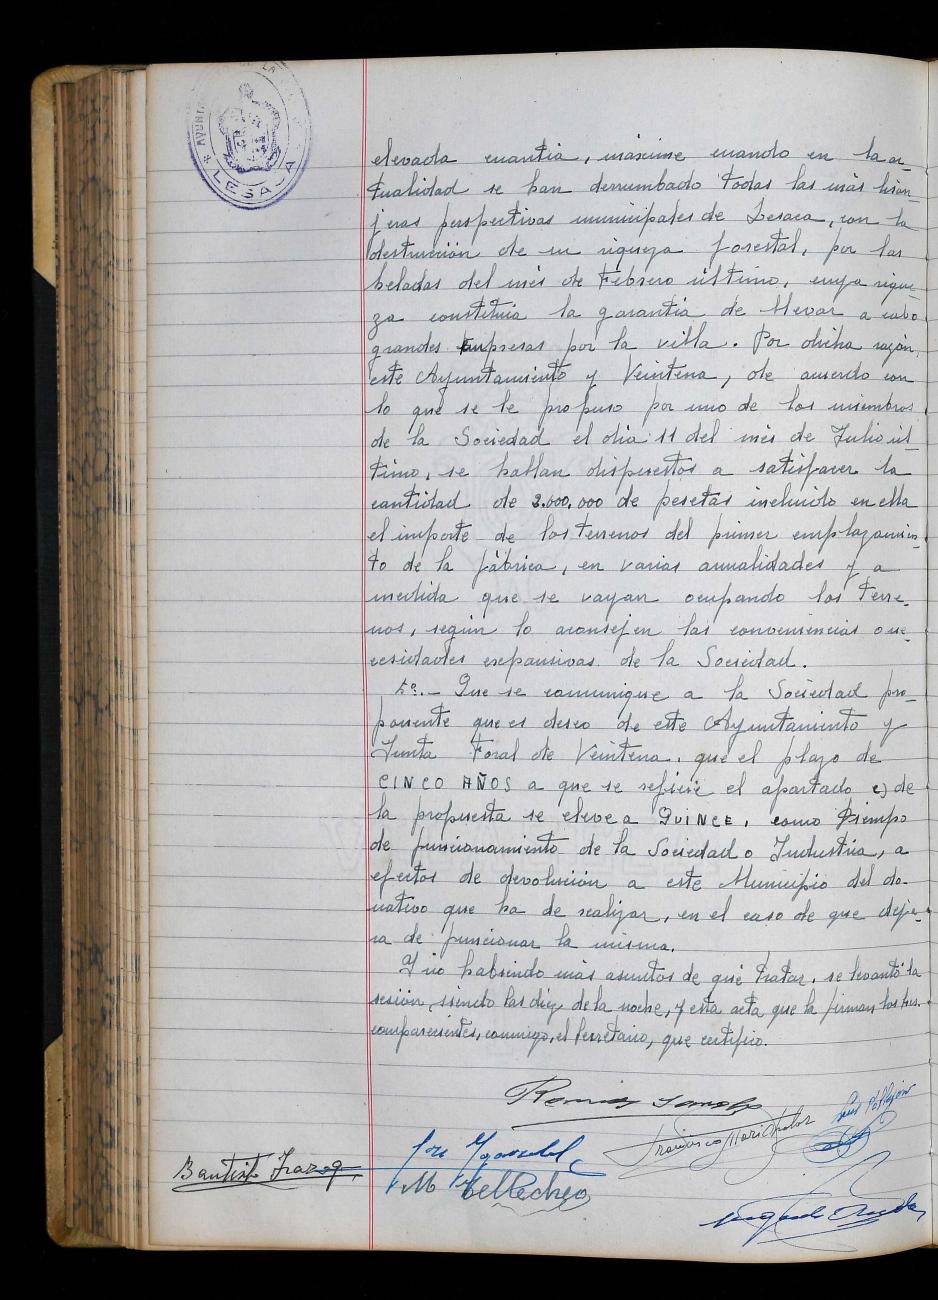 AYUNTA
LESACA
elevada cuantia, máxime cuando en la ac
tualidad se han derrumbado todas las más lison-
jeras perspectivas municipales de Lesaca, con la
destrucción de su riqueza forestal, por las
heladas del més de Febrero último, cuya rique-
za constituia la garantia de llevar a cabo
grandes Empresas por la villa. Por dicha razón,
este Ayuntamiento y Veintena, de acuerdo con
lo que se le propuso por uno de los miembros
de la Sociedad el dia 11 del més de Julio úl-
timo, se hallan dispuestos a satisfacer la
cantidad de 2.000.000 de pesetas incluido en ella
el importe de los terrenos del primer emplazamien-
to de la fábrica, en varias anualidades y a
medida que se vayan ocupando los Terre-
nos, según lo aconsejen las conveniencias o ne-
cesidades expansivas de la Sociedad.
5º.- Que se comunique a la Sociedad pro-
ponente que es deseo de este Ayuntamiento y
Junta Foral de Veintena, que el plazo de
CINCO AÑOS a que se refiere el apartado e) de
la propuesta se eleve a QUINCE, como tiempo
de funcionamiento de la Sociedad o Industria, a
efectos de devolución a este Municipio del do-
nativo que ha de realizar, en el caso de que deja-
ra de funcionar la misma.
Y no habiendo más asuntos de que tratar, se levantó la
sesión, siendo las diez de la noche, y esta acta que la firman los tres.
comparecientes, conmigo, el Secretario, que certifico.
Francisco
Bautista
M Tellechea